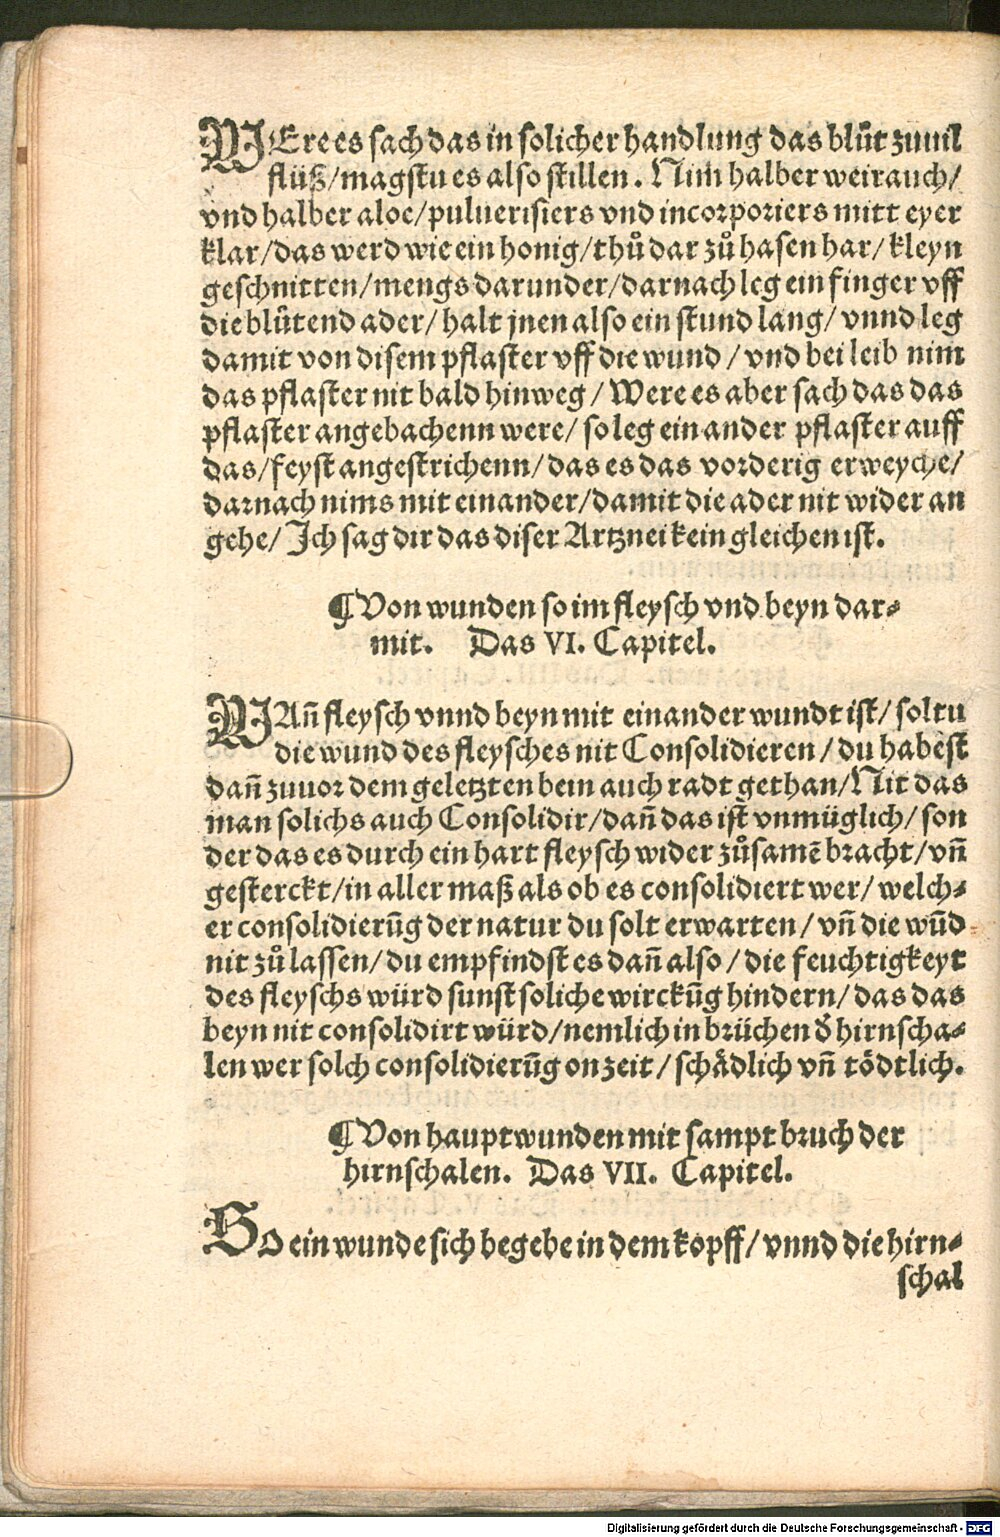 WEre es sach das in solicher handlung das blůt zuuil
flüß/magstu es also stillen. Nim halber weirauch/
vnd halber aloe/puluerisiers vnd incorporiers mitt eyer
klar/das werd wie ein honig/thů dar zů hasen har/kleyn
geschnitten/mengs darunder/darnach leg ein finger vff
die blůtend ader/halt jnen also ein stund lang/vnnd leg
damit von disem pflaster vff die wund/vnd bei leib nim
das pflaster nit bald hinweg/Were es aber sach das das
pflaster angebachenn were/so leg ein ander pflaster auff
das/feyst angestrichenn/das es das vorderig erweyche/
darnach nims mit einander/damit die ader nit wider an
gehe/Ich sag dir das diser Artznei kein gleichen ist.
¶Von wunden so im fleysch vnd beyn dar⸗
mit. Das VI. Capitel.
WAñ fleysch vnnd beyn mit einander wundt ist/soltu
die wund des fleysches nit Consolidieren/du habest
dañ zuuor dem geletzten bein auch radt gethan/Nit das
man solichs auch Consolidir/dañ das ist vnmüglich/son
der das es durch ein hart fleysch wider zůsamē bracht/vñ
gesterckt/in aller maß als ob es consolidiert wer/welch⸗
er consolidierūg der natur du solt erwarten/vñ die wūd
nit zů lassen/du empfindst es dañ also/die feuchtigkeyt
des fleyschs würd sunst soliche wirckūg hindern/das das
beyn nit consolidirt würd/nemlich in brüchen d̕ hirnscha⸗
len wer solch consolidierūg on zeit/schådlich vñ tödtlich.
¶Von hauptwunden mit sampt bruch der
hirnschalen. Das VII. Capitel.
SO ein wunde sich begebe in dem kopff/vnnd die hirn⸗
schal
Digitalisierung gefördert durch die Deutsche Forschungsgemeinschaft - DFG